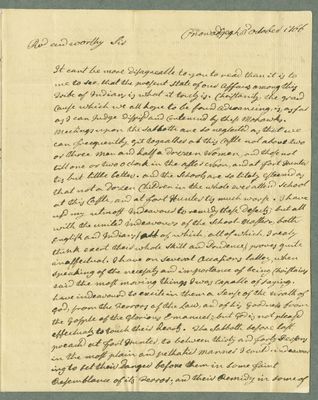 Onowadgegh October 1756
Revd and worthy Sir
It cant be more disagreable to you to read than it is to
me to see, that the present State of our Affairs among this
Tribe of Indians is what it truly is. Christianity the grand
Cause which we all hope to be found advancing, is as far
as I can Judge and contemned by these Mohawks.
Meetings upon the Sabbath are so neglected as that we
can frequently get together at this Castle not above two
or three men and half a Dozen Women, and they not
till one or two o clock in the afternoon, and at fort Hunter
tis but little better. and the Schools are so little esteemed as
that not a Dozen Children in the whole ever attend School
at this Castle and at fort Hunter tis much worse. I have
used my utmost Endeavours to remedy these Defects; but all
with the united Endeavours of the School Masters, both
English and Indians, all of which, all of which I really
think exert their whole Skill and Prudence, proves quite
ineffectual. I have on several Occasions lately, when
speaking of the necessity and importance of being Christians
said the most moving things I was capable of saying.
have indeavoured to excite in them a Sense of the wrath of
god, from the Terrors of the Law and of his Goodness from
the Gospell of the Glorious Emanuel; but God is not pleased
effectualy to touch their hearts. The Sabbath before last
preached at fort Hunter to between thirty and forty Persons
in the most plain and pathetick manner I could indeavour
ing to set their Danger before them in some faint
Resemblance of its Terror, and their Remedy in some of